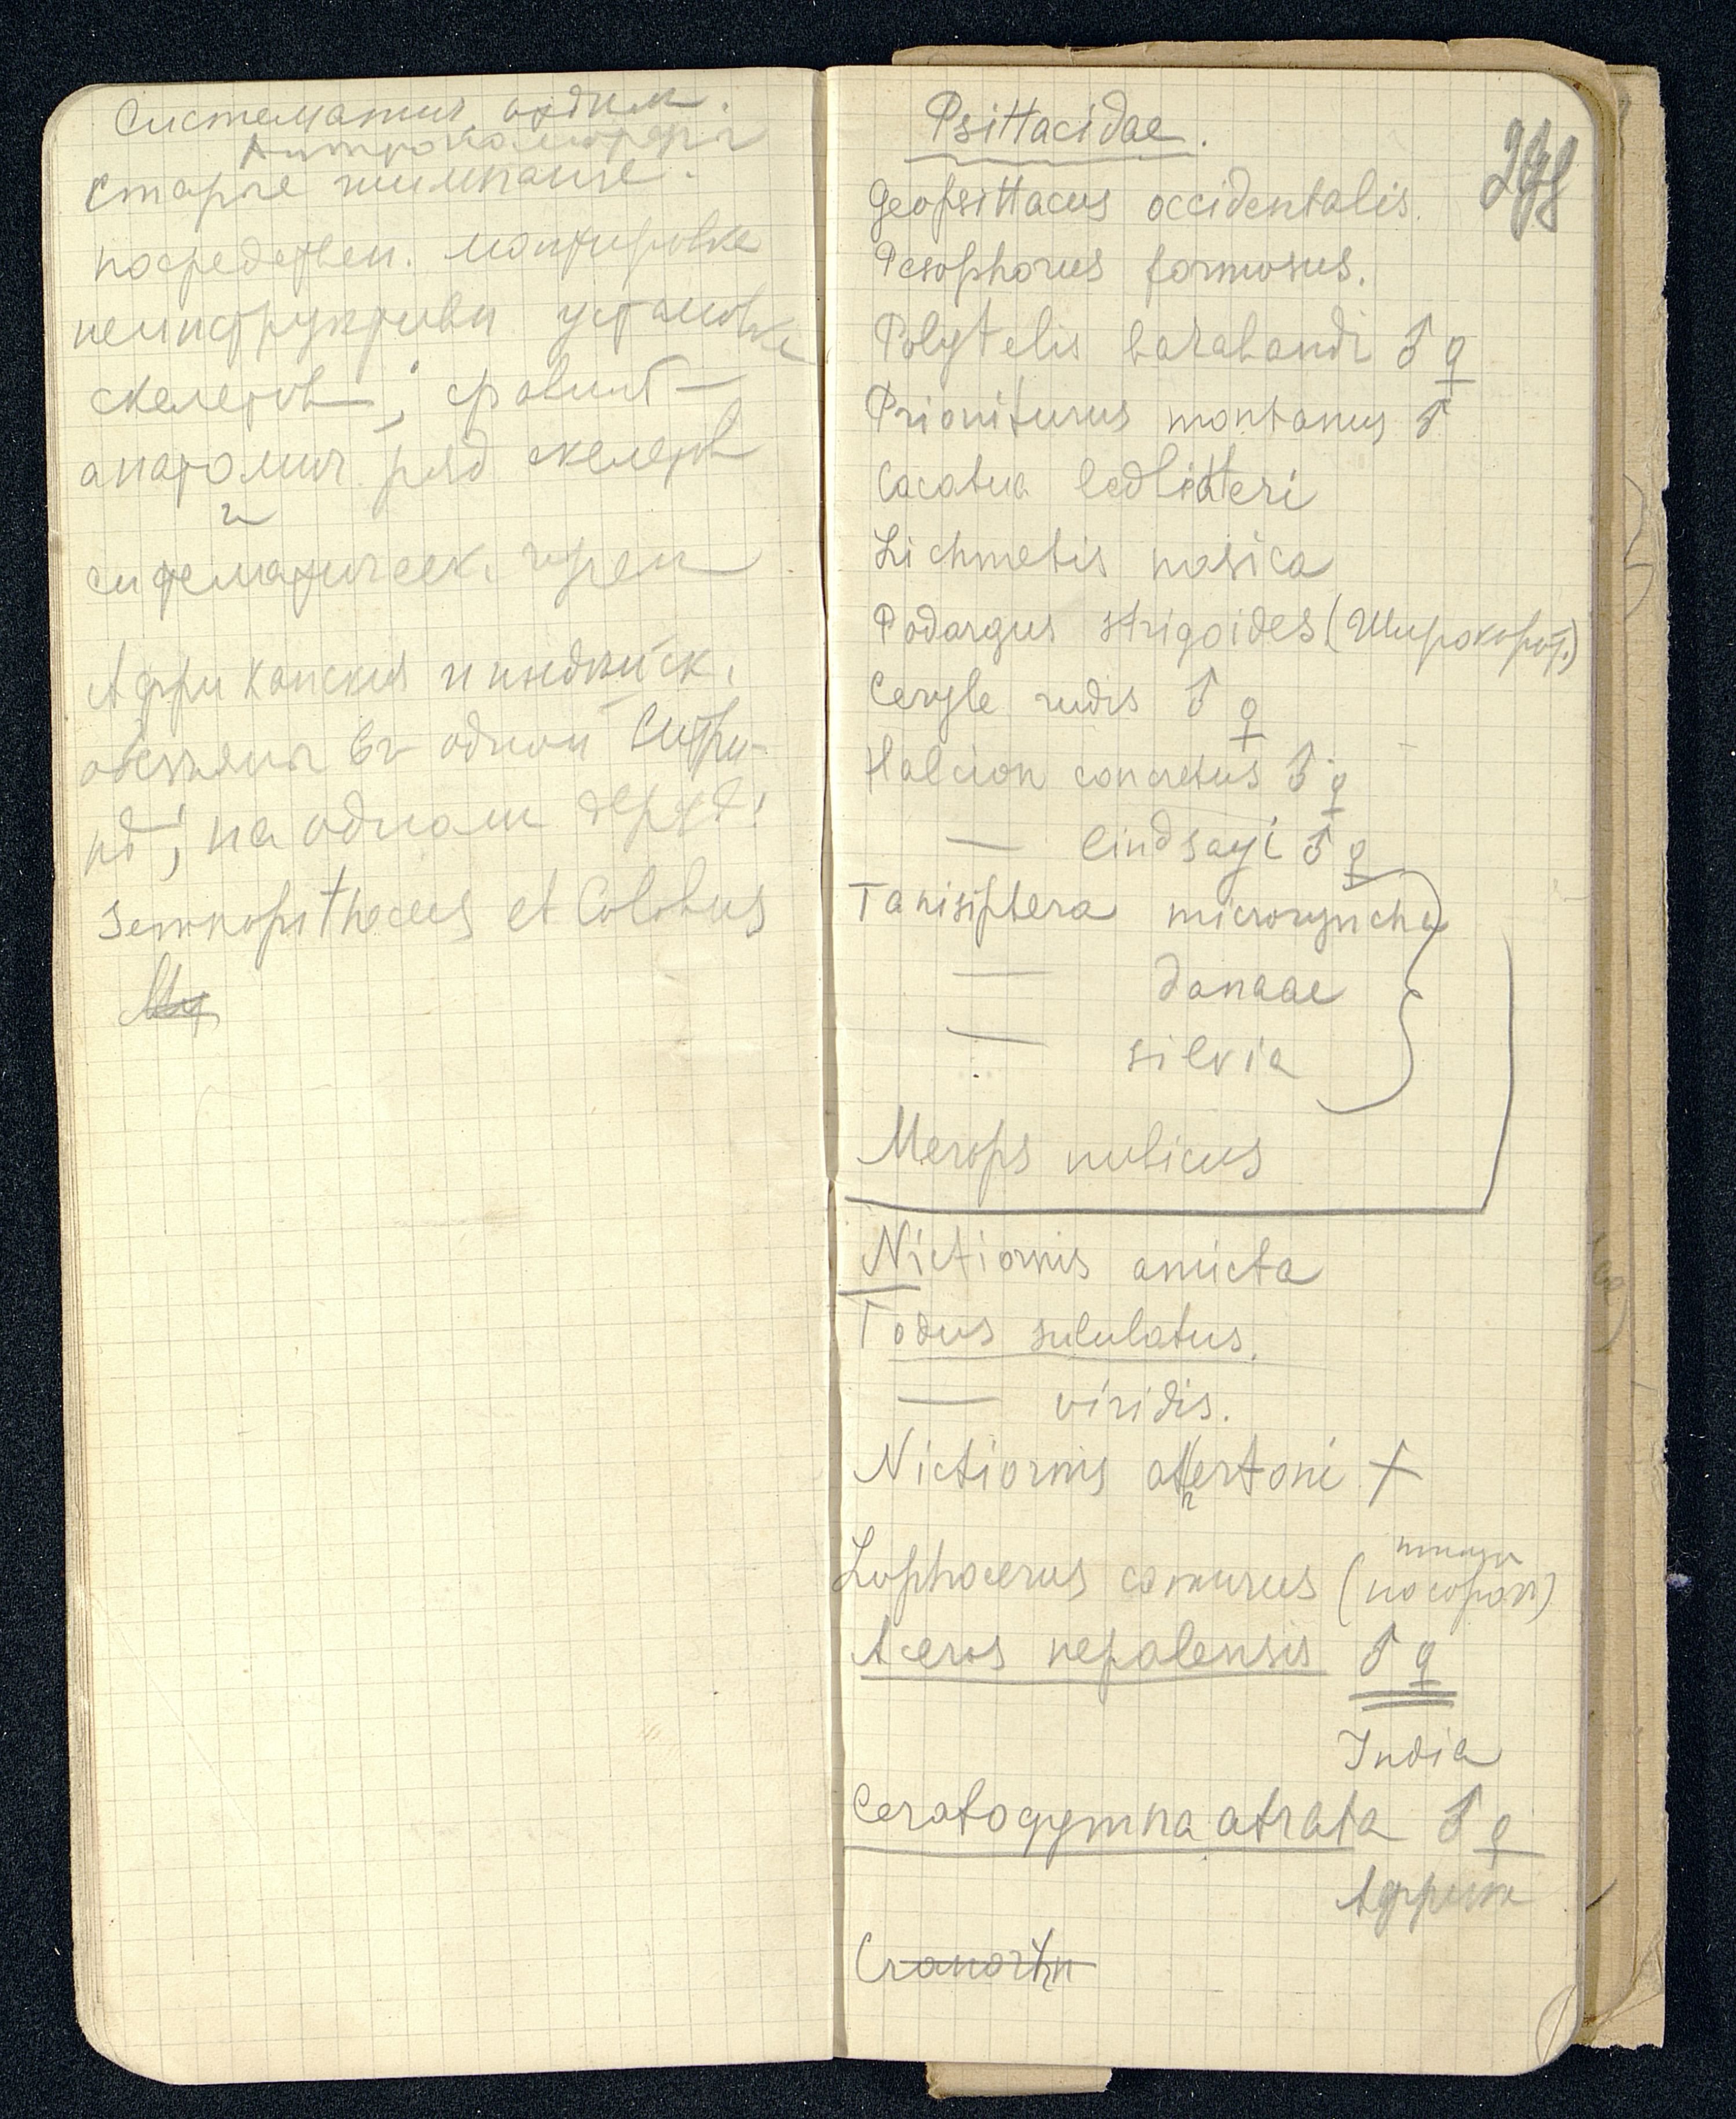 Систематич. отдел.
Антропоморфы
старые шимпанзе.
посредствен. монтировке
неинструктивн установке
скелетов; сравнит—
анатомич. ряд скелетов
и
систематическ. черепов
Африканския и индийск.
обезьяны въ одной витри-
нѣ; на одном дерев.!
Semnopithecus et Colobus
Psittacidae.
Geopsittacus occidentalis.
Pesophorus formosus.
Polytelis barabandi ♂ ♀
Prioniturus montanus ♂
Cacatua ledbitteri
Lichmetis nasica
Podargus strigoides (Широкорот.)
Ceryle rudis ♂ ♀
Halcion concretus ♂ ♀
— lindsayi ♂ ♀
Tanisiptera microryncha
— danaae
— silvia
Merops nubicus
Nictiornis amicta
Todus subulatus.
— viridis.
Nictiornis athertoni +
Lophocerus camurus (птица носорог)
Aceros nepalensis ♂ ♀
India
Ceratogymna atrata ♂ ♀
Африка